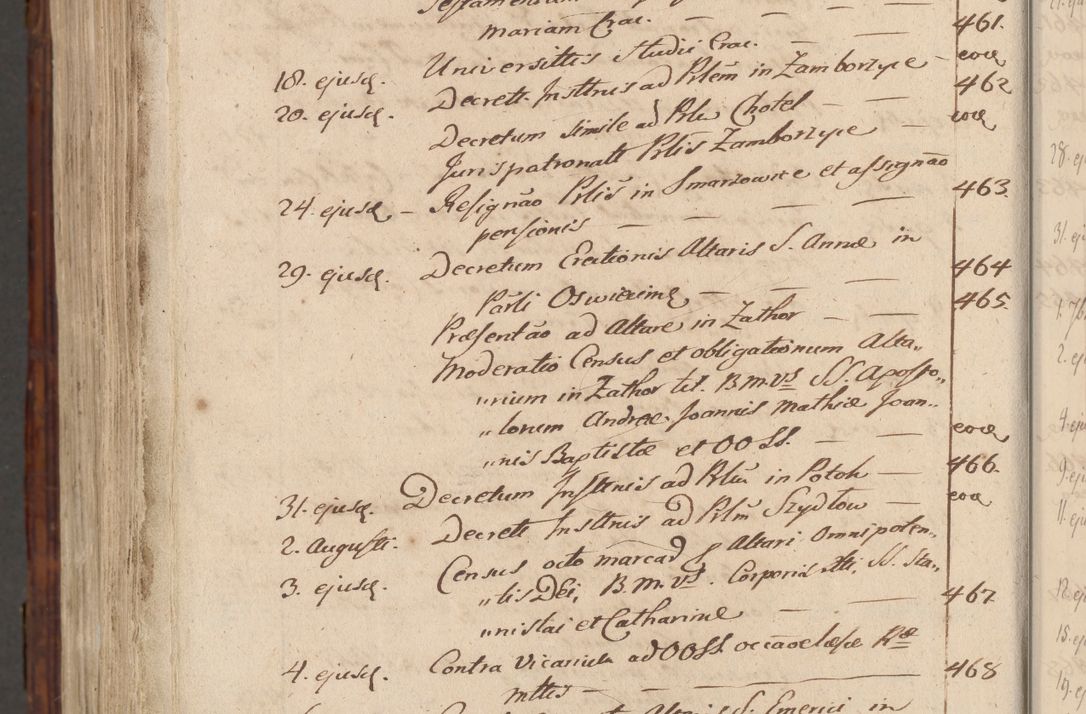 mariam Crac. — — — 461.
18. ejusq. Universittis Studii Crac. — — eoq
20. ejusq. Decrett. Insttnis ad Prlem in Zamborzyce — 462
Decretum simile ad Prlu Chotel — — eoq
Jurispatronatt Prlis Zamborzyce —
24. ejusq. — Resignão Prliś in Smarzowice et assignão 463.
pensionis — — — —
29. ejusq. Decretum Erectionis Altaris S. Annæ in
Parli Oswiecime — — — — 464
Præsentão ad Altare in Zathor — — 465.
Moderatio Census et obligationum Alta„
„rium in Zathor tit. B.M.Vs SS. Aposto„
„lorum Andreæ Joannis Mathiæ Joan„
„nis Baptistæ et OO SS. — — eoq
31. ejusq. Decretum Insttnis ad Prlu in Potok — 466.
2. Augusti. Decrett Insttnis ad Prlm Szydlow — eoq
3. ejusq. Census octo marcaд p Altari Omnipoten„
„tis Dei, B.M.Vs. Corporis Xtti, SS. Sta„
„nislai et Catharinæ — — — 467
4. ejusq. Contra Vicarium ad OOSS. occãoe læsæ Ræ
mttis — — 468
S. Emerici in